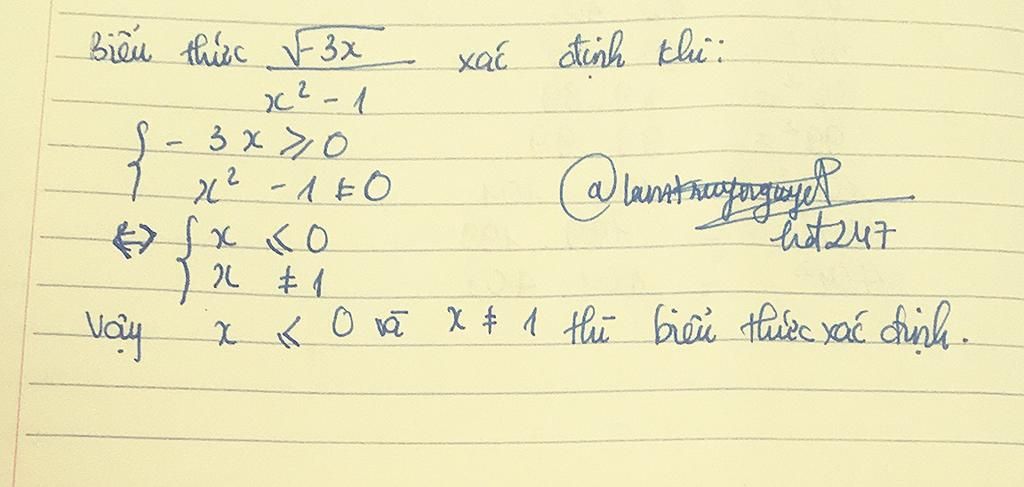 Biểu thức √-3x / x² - 1 xác định khi:
{ - 3x ⩾ 0
x² - 1 ≠ 0
⇔ { x ⩽ 0
x ≠ 1
hot247
Vậy x ⩽ 0 và x ≠ 1 thì biểu thức xác định.